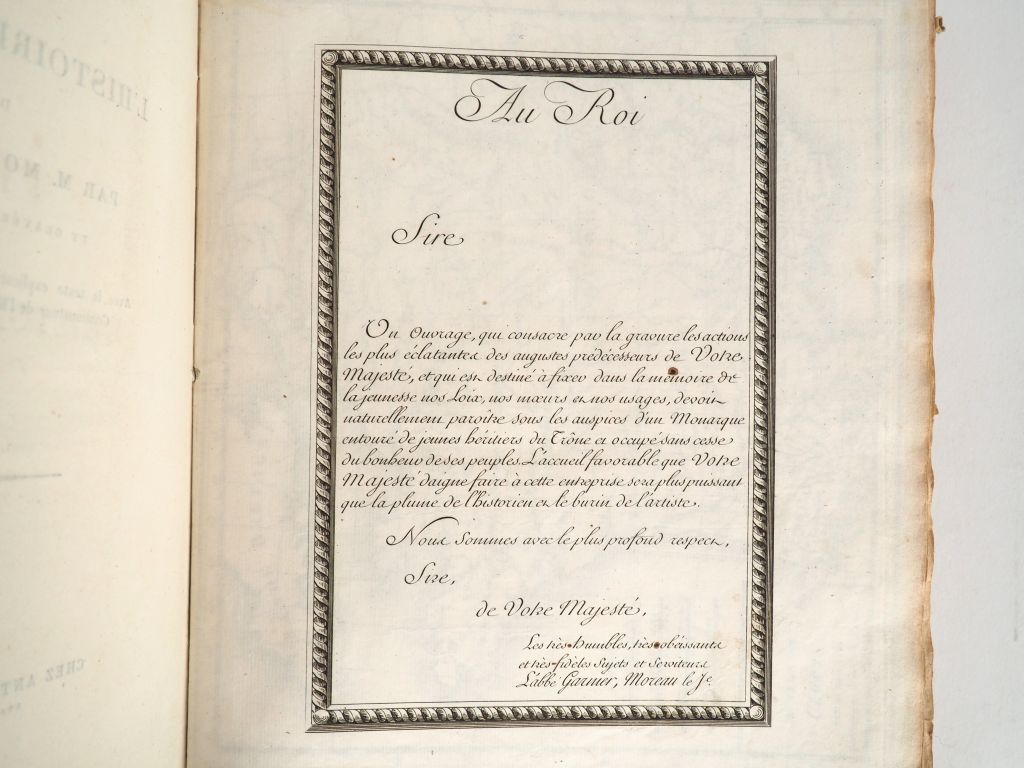 Au Roi
Sire
Un Ouvrage, qui consacre par la gravure les actions
les plus éclatantes des augustes prédécésseurs de Votre
Majesté, et qui est destiné à fixer dans la mémoire de
la jeunesse nos Loix, nos mœurs et nos usages, devoit
naturellement paroître sous les auspices d'un Monarque
entouré de jeunes héritiers du Trône et occupé sans cesse
du bonheur de ses peuples. L'accueil favorable que Votre
Majesté daigne faire à cette entreprise sera plus puissant
que la plume de l'historien et le burin de l'artiste.
Nous Sommes avec le plus profond respect,
Sire,
de Votre Majesté,
Les très-humbles, très-obéissants
et très-fidèles Sujets et Serviteurs
L'abbé Garnier, Moreau le Je.
L'HISTOIRE
PAR M. MO
CHEZ ANT